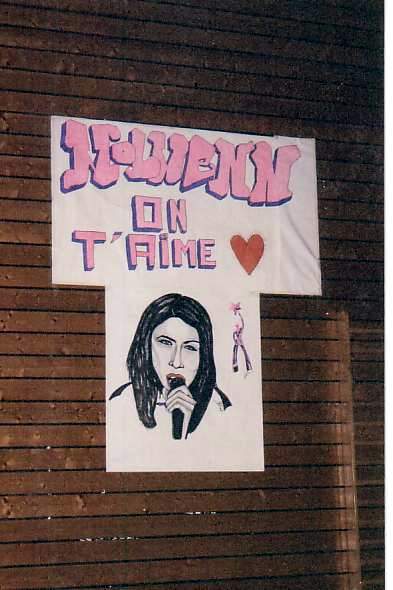 NOLWENN
ON
T'AIME